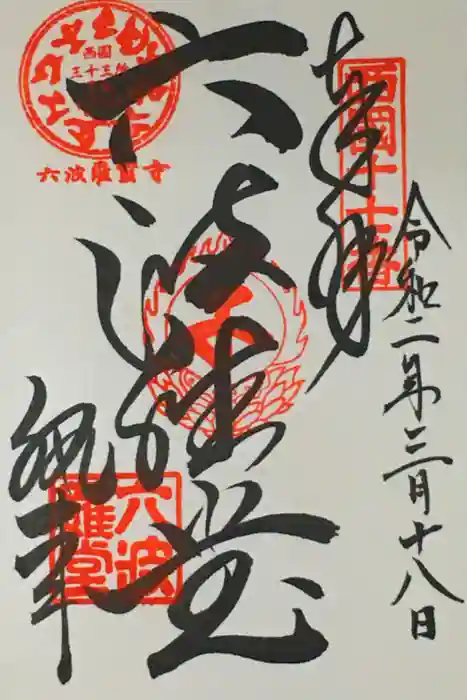 奉拝
西國十七番
令和二年三月十八日
六波羅堂
西国
三十三
六波羅蜜寺
六波
羅堂